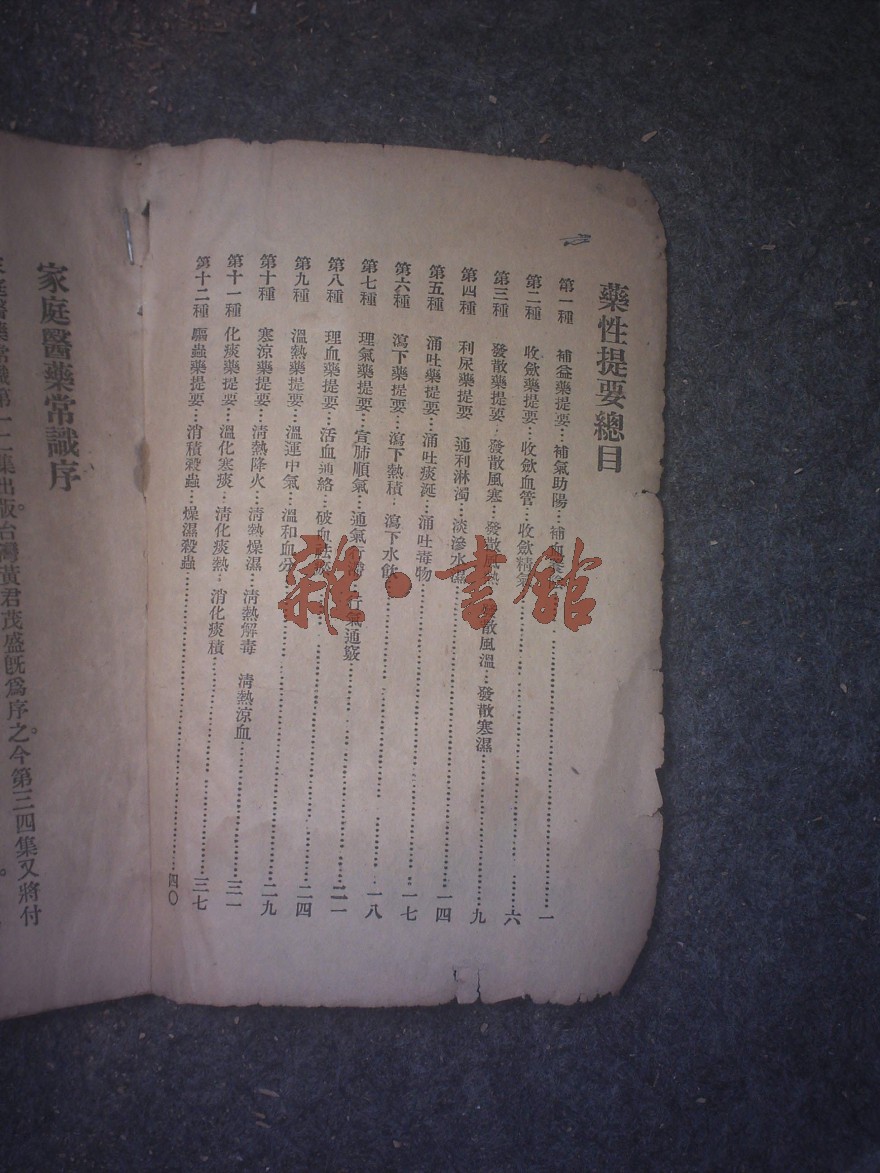 藥性提要總目
第一種 補益藥提要…補氣助陽…補血
第二種 收斂藥提要…收斂血管…收斂精氣 六
第三種 發散藥提要…發散風寒…發散風熱 發散風溫…發散寒濕 九
第四種 利尿藥提要 通利淋濁…淡滲水濕 一四
第五種 涌吐藥提要…涌吐痰涎…涌吐毒物 一七
第六種 瀉下藥提要…瀉下熱積…瀉下水飲 一八
第七種 理氣藥提要…宣肺順氣…通氣行滯…行氣通竅
第八種 理血藥提要…活血通絡…破血 二四
第九種 溫熱藥提要…溫運中氣…溫和血分 二九
第十種 寒涼藥提要…清熱降火…清熱燥濕…清熱解毒 清熱涼血 三一
第十一種 化痰藥提要…溫化寒痰…清化痰熱 消化痰積 三七
第十二種 驅蟲藥提要…消積殺蟲…燥濕殺蟲 四〇
家庭醫藥常識序
庭醫藥常識第一二集出版台灣黃君茂盛既爲序之今第三四集又將付
雜·書館